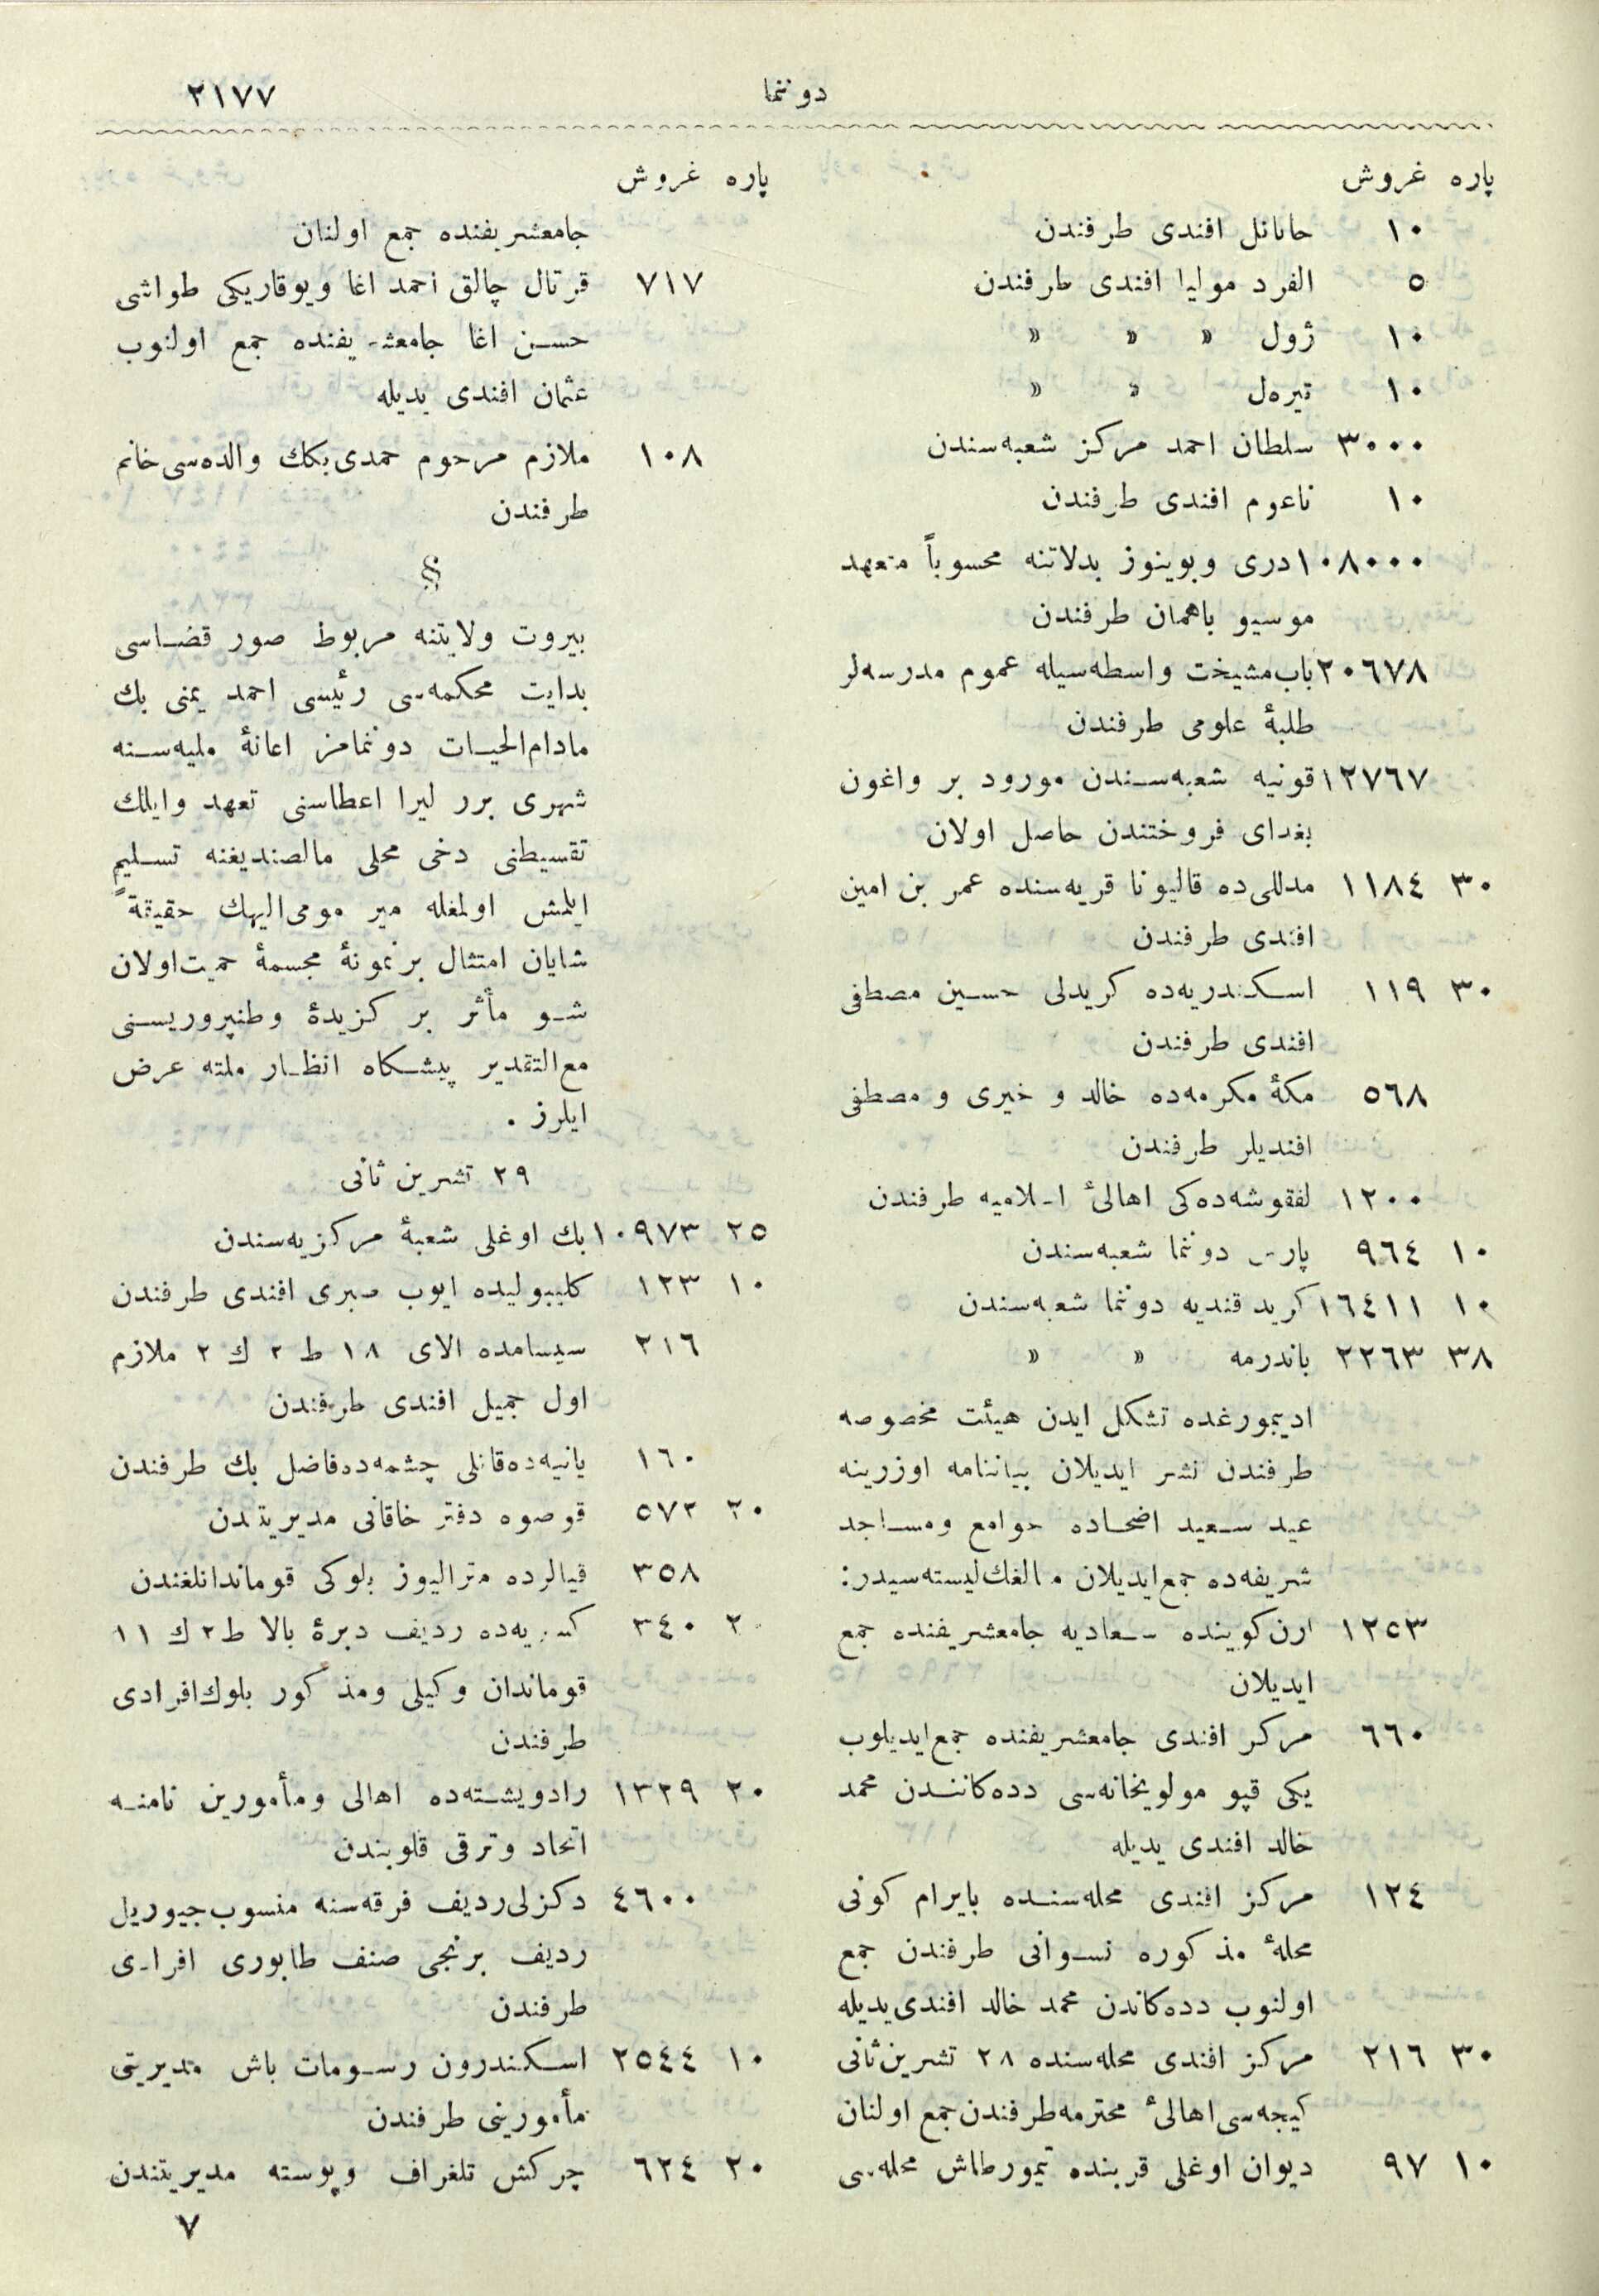 دوننما ٢١٧٧
پاره غروش
١٠ حانانل افندی طرفندن
٥ الفرد مولیا افندی طرفندن
١٠ ژول » » »
١٠ تیره‌ل » »
٣٠٠٠ سلطان احمد مركز شعبه‌سندن
١٠ ناعوم افندی طرفندن
١٠٨٠٠٠ دری وبوینوز بدلاتنه محسوباً متعهد
موسیو باهمان طرفندن
٢٠٦٧٨ باب‌مشیخت واسطه‌سیله عموم مدرسه‌لر
طلبهٔ علومی طرفندن
١٢٧٦٧ قونیه شعبه‌سندن مورود بر واغون
بغدای فروختندن حاصل اولان
٣٠ ١١٨٤ مدللی‌ده قالیونا قریه‌سنده عمر بن امین
افندی طرفندن
٣٠ ١١٩ اسكندریه‌ده كریدلی حسین مصطفی
افندی طرفندن
٥٦٨ مكهٔ مكرمه‌ده خالد و خیری و مصطفی
افندیلر طرفندن
١٢٠٠ لفقوشه‌ده‌كی اهالیٔ اسلامیه طرفندن
١٠ ٩٦٤ پارس دوننما شعبه‌سندن
١٠ ١٦٤١١ كرید قندیه دوننما شعبه‌سندن
٣٨ ٢٢٦٣ باندرمه » »
ادیمورغده تشكل ایدن هیئت مخصوصه
طرفندن نشر ایدیلان بیاننامه اوزرینه
عید سعید اضحاده جوامع ومساجد
شریفه‌ده جمع‌ایدیلان مبالغك‌لیسته‌سیدر:
١٢٥٣ ارن‌كوینده سعادیه جامعشریفنده جمع
ایدیلان
٦٦٠ مركز افندی جامعشریفنده جمع‌ایدیلوب
یكی قپو مولویخانه‌سی دده‌كانندن محمد
خالد افندی یدیله
١٢٤ مركز افندی محله‌سنده بایرام كونی
محلهٔ مذكوره نسوانی طرفندن جمع
اولنوب دده‌كاندن محمد خالد افندی‌یدیله
٣٠ ٢١٦ مركز افندی محله‌سنده ٢٨ تشرین‌ثانی
كیجه‌سی‌اهالیٔ محترمه‌طرفندن‌جمع اولنان
١٠ ٩٧ دیوان اوغلی قربنده تیمورطاش محله‌سی
پاره غروش
جامعشریفنده جمع اولنان
٧١٧ قرتال چالق احمد اغا ویوقاریكی طواشی
حسن اغا جامعشریفنده جمع اولنوب
عثمان افندی یدیله
١٠٨ ملازم مرحوم حمدی‌بكك والده‌سی‌خانم
طرفندن
§
بیروت ولایتنه مربوط صور قضاسی
بدایت محكمه‌سی رئیسی احمد یمنی بك
مادام‌الحیات دوننمامز اعانهٔ ملیه‌سنه
شهری برر لیرا اعطاسنی تعهد وایلك
تقسیطنی دخی محلی مالصندیغنه تسلیم
ایلمش اولمغله میر مومی‌الیهك حقیقةً
شایان امتثال برنمونهٔ مجسمهٔ حمیت‌اولان
شو مأثر بر كزیدهٔ وطنپروریسنی
مع‌التقدیر پیشكاه انظار ملته عرض
ایلرز .
٢٩ تشرین ثانی
٢٥ ١٠٩٧٣ بك اوغلی شعبهٔ مركزیه‌سندن
١٠ ١٢٣ كلیبولیده ایوب صبری افندی طرفندن
٢١٦ سیسامده الای ١٨ ط ٢ ك ٢ ملازم
اول جمیل افندی طرفندن
١٦٠ یانیه‌ده‌قانلی چشمه‌ده‌فاضل بك طرفندن
٢٠ ٥٧٢ قوصوه دفتر خاقانی مدیریتندن
٣٥٨ قیالرده مترالیوز بلوكی قومانداانلغندن
٢٠ ٣٤٠ كسریه‌ده ردیف دبرهٔ بالا ط ٢ ك ١١
قوماندان وكیلی ومذكور بلوك‌افرادی
طرفندن
٢٠ ١٣٢٩ رادویشته‌ده اهالی ومأمورین نامنه
اتحاد وترقی قلوبندن
٤٦٠٠ دكزلی‌ردیف فرقه‌سنه منسوب‌جیوریل
ردیف برنجی صنف طابوری افرادی
طرفندن
١٠ ٢٥٤٤ اسكندرون رسومات باش مدیریتی
مأمورینی طرفندن
٢٠ ٦٢٤ چركش تلغراف وپوسته مدیریتندن
٧